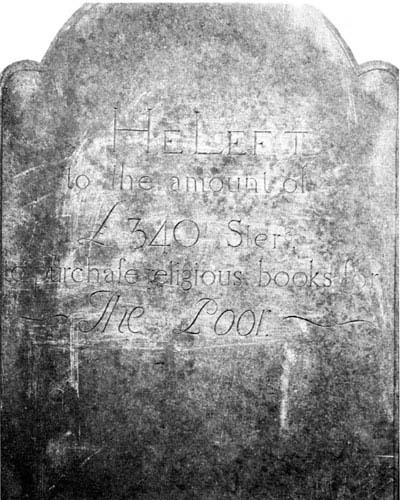 HE LEFT
to the amount of
£ 340 Ster.
to purchaſe religious books for
The Poor.